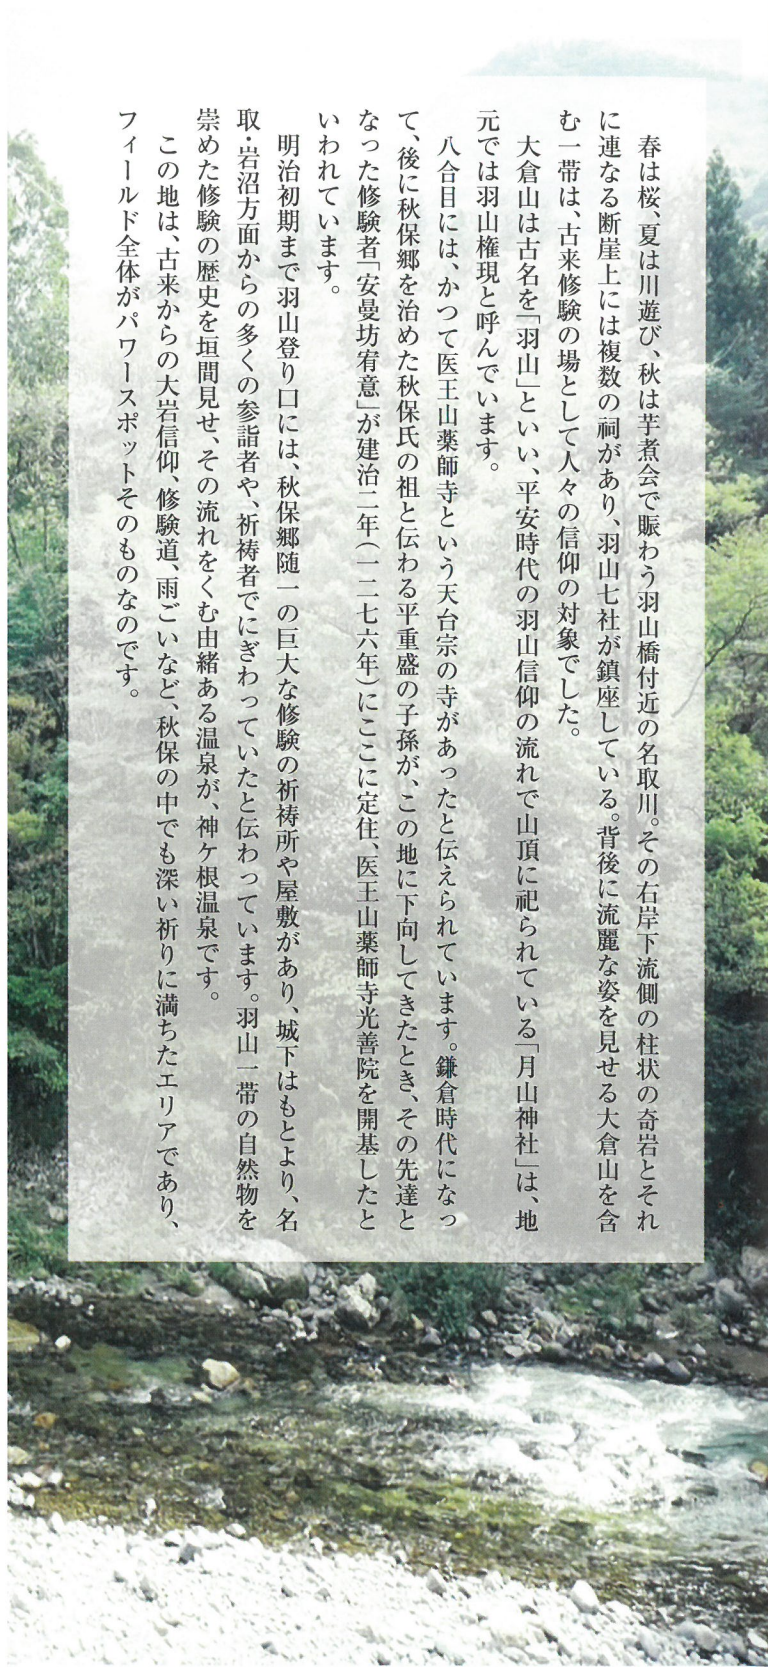 春は桜、夏は川遊び、秋は芋煮会で賑わう羽山橋付近の名取川。その右岸下流側の柱状の奇岩とそれ
に連なる断崖上には複数の祠があり、羽山七社が鎮座している。背後に流麗な姿を見せる大倉山を含
む一帯は、古来修験の場として人々の信仰の対象でした。
大倉山は古名を「羽山」といい、平安時代の羽山信仰の流れで山頂に祀られている「月山神社」は、地
元では羽山権現と呼んでいます。
八合目には、かつて医王山薬師寺という天台宗の寺があったと伝えられています。鎌倉時代になっ
て、後に秋保郷を治めた秋保氏の祖と伝わる平重盛の子孫が、この地に下向してきたとき、その先達と
なった修験者「安曼坊宥意」が建治二年(一二七六年)にここに定住、医王山薬師寺光善院を開基したと
いわれています。
明治初期まで羽山登り口には、秋保郷随一の巨大な修験の祈祷所や屋敷があり、城下はもとより、名
取・岩沼方面からの多くの参詣者や、祈祷者でにぎわっていたと伝わっています。羽山一帯の自然物を
崇めた修験の歴史を垣間見せ、その流れをくむ由緒ある温泉が、神ケ根温泉です。
この地は、古来からの大岩信仰、修験道、雨ごいなど、秋保の中でも深い祈りに満ちたエリアであり、
フィールド全体がパワースポットそのものなのです。